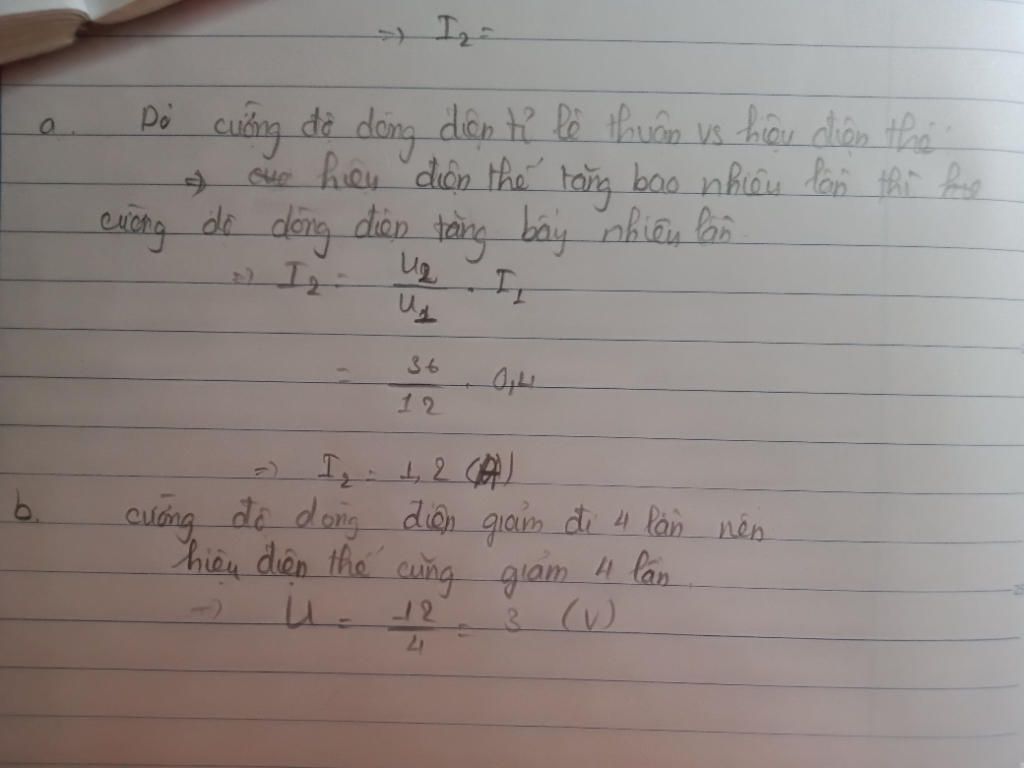 => I₂ =
a. Do cường độ dòng điện tỉ lệ thuận vs hiệu điện thế
=> hiệu điện thế tăng bao nhiêu lần thì
cường độ dòng điện tăng bấy nhiêu lần
=> I₂ = U₂/U₁ . I₁
= 36/12 . 0,4
=> I₂ = 1,2 (A)
b. cường độ dòng điện giảm đi 4 lần nên
hiệu điện thế cũng giảm 4 lần
=> U = 12/4 = 3 (V)